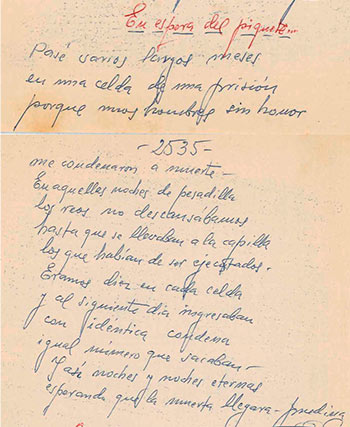 En espera del piquete...
Pasé varios largos meses
en una celda de una prisión
porque unos hombres sin honor
-2535-
me condenaron a muerte-
En aquellas noches de pesadilla
los reos no descansábamos
hasta que se llevaban a la capilla
los que habian de ser ejecutados.
Eramos diez en cada celda
y al siguiente dia ingresaban
con idéntica condena
igual número que sacaban-
Y asi noches y noches eternas
esperando que la muerte llegara-